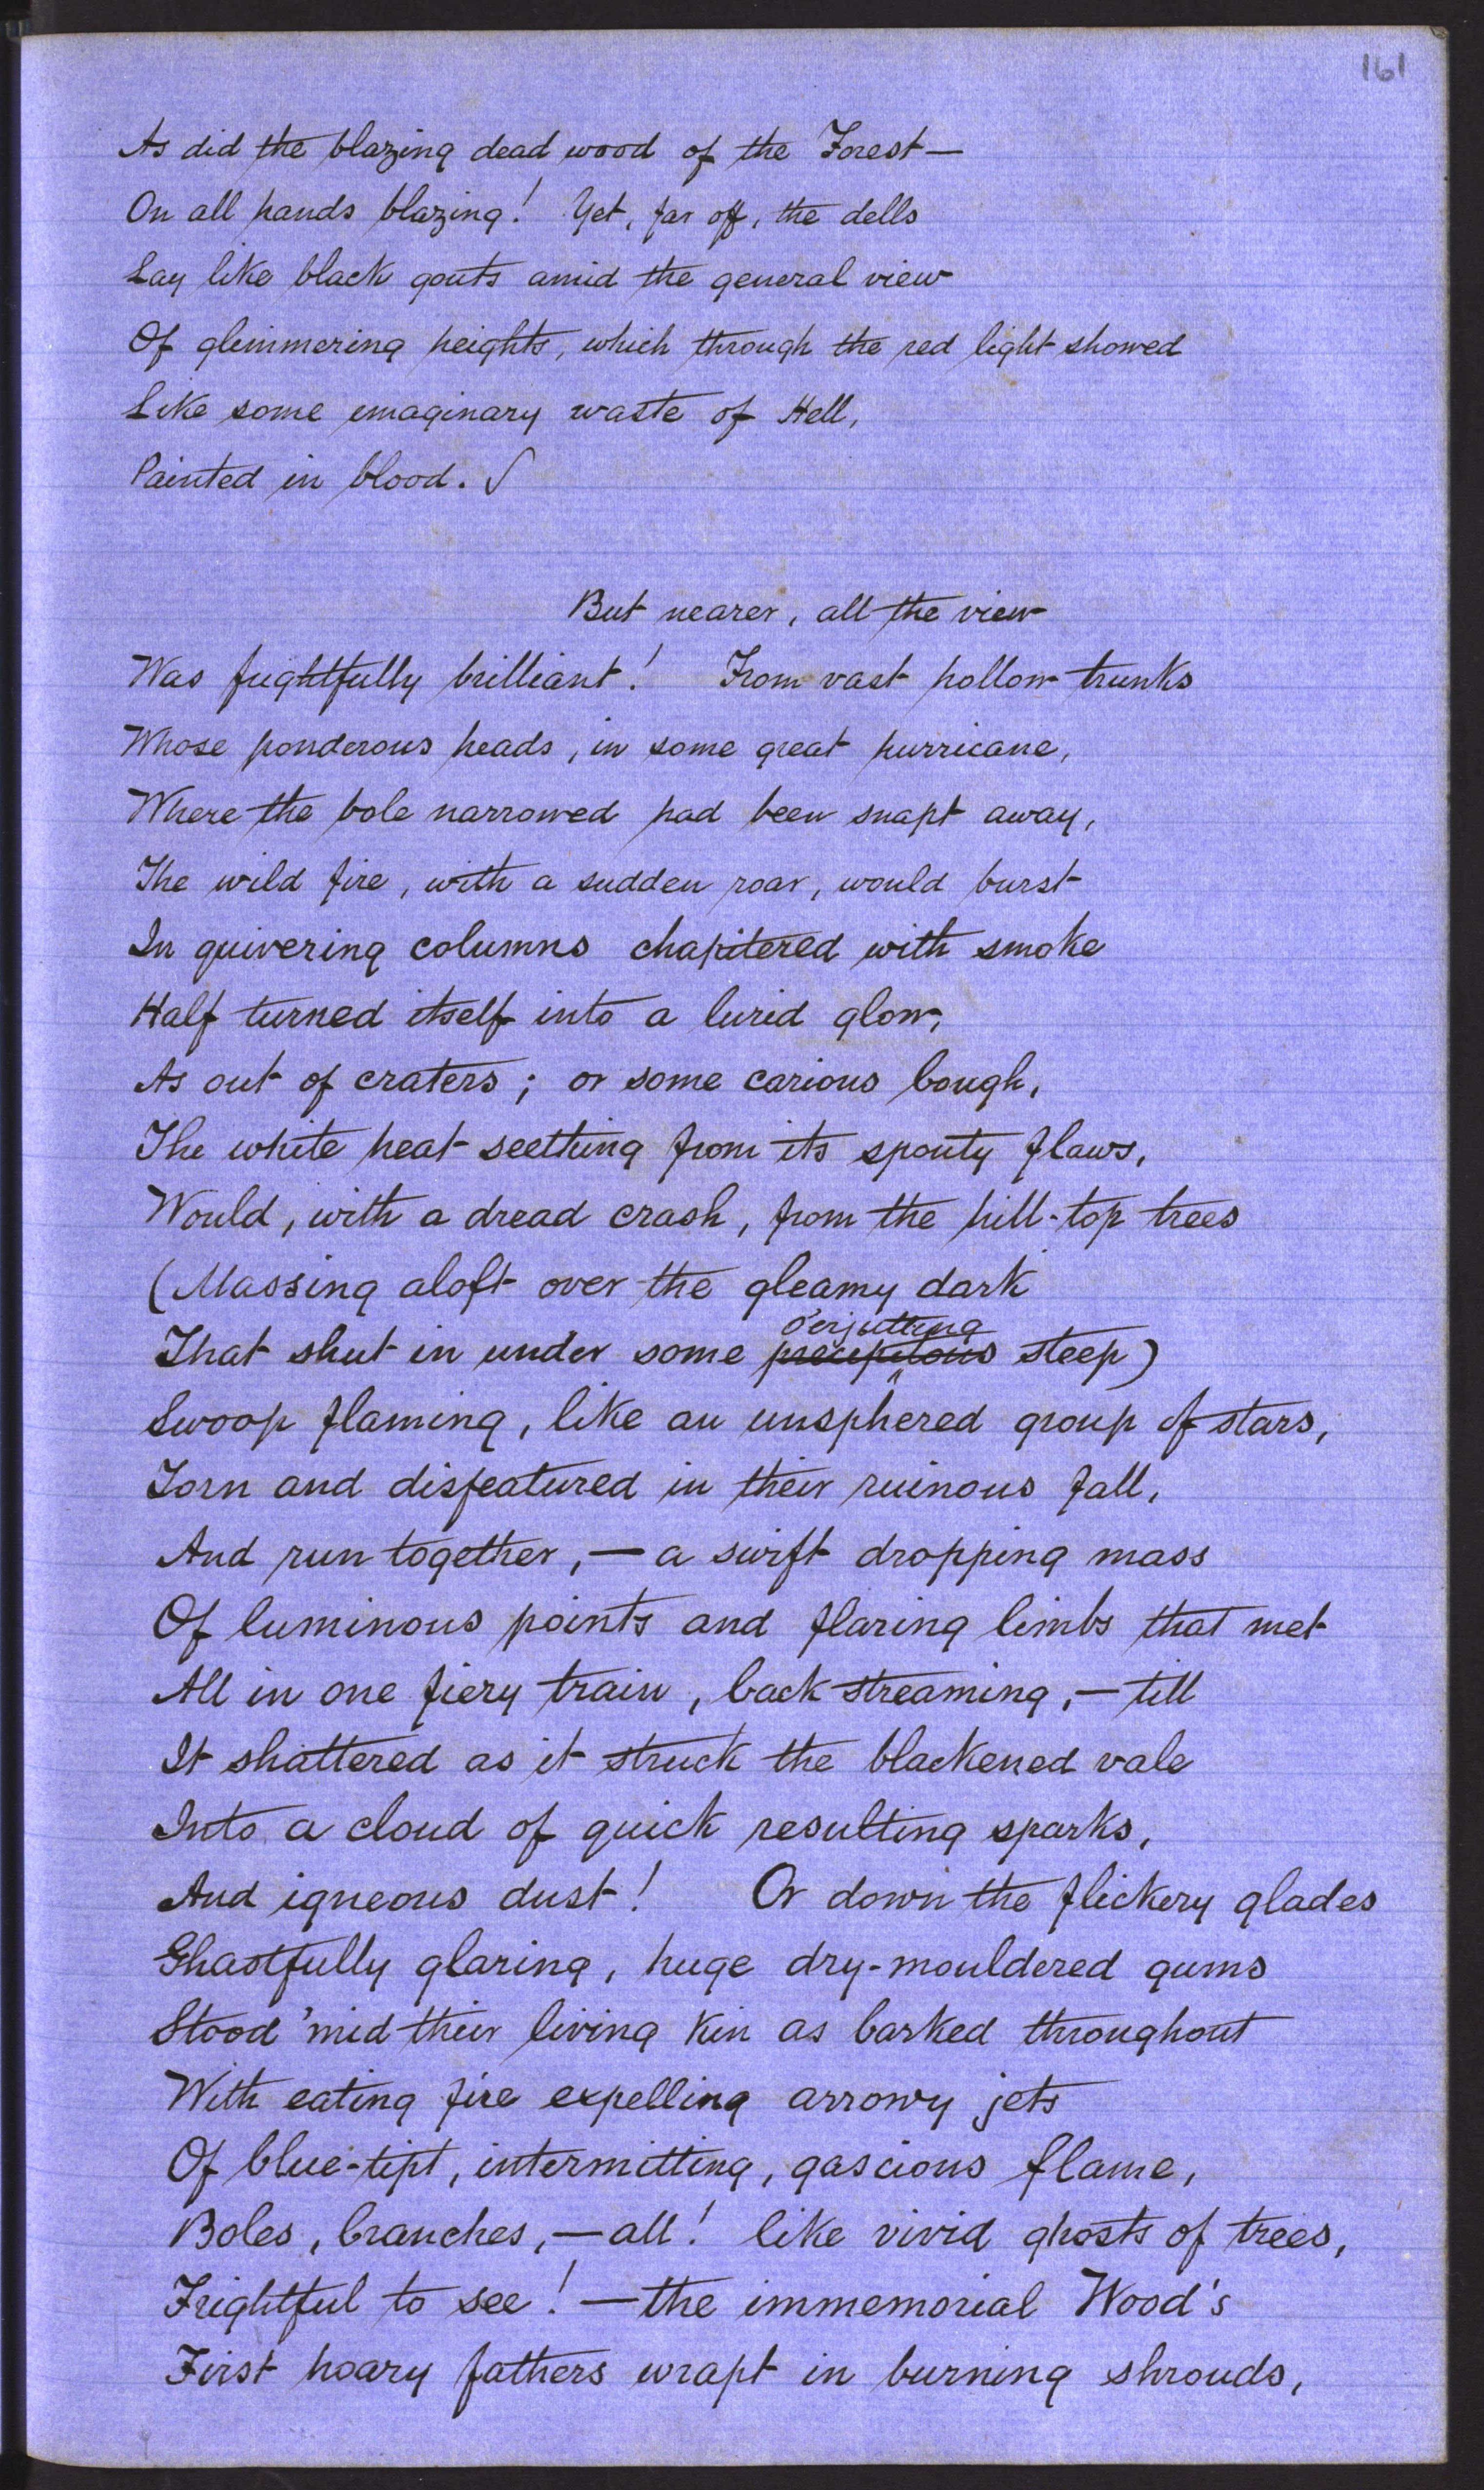 161
As did the blazing dead wood of the Forest—
On all hands blazing! Yet, far off, the dells
Lay like black gouts amid the general view
Of glimmering heights, which through the red light showed
Like some imaginary waste of Hell,
Painted in blood.
But nearer, all the view
Was frightfully brilliant! From vast hollow trunks
Whose ponderous heads, in some great hurricane,
Where the bole narrowed had been snapt away,
The wild fire, with a sudden roar, would burst
In quivering columns chapitered with smoke
Half turned itself into a lurid glow,
As out of craters; or some carious bough,
The white heat seething from its spouty flaws,
Would, with a dread crash, from the hill-top trees
(Massing aloft over the gleamy dark
o'erjutting
That shut in under some precipitous steep)
Swoop flaming, like an unsphered group of stars,
Torn and disfeatured in their ruinous fall,
And run together,—a swift dropping mass
Of luminous points and flaring limbs that met
All in one fiery train, back streaming,—till
It shattered as it struck the blackened vale
Into a cloud of quick resulting sparks,
And igneous dust! Or down the flickery glades
Ghastfully glaring, huge dry-mouldered gums
Stood 'mid their living kin as barked throughout
With eating fire expelling arrowy jets
Of blue-tipt, intermitting, gascious flame,
Boles, branches,—all! like vivid ghosts of trees,
Frightful to see!—the immemorial Wood's
First hoary fathers wrapt in burning shrouds,